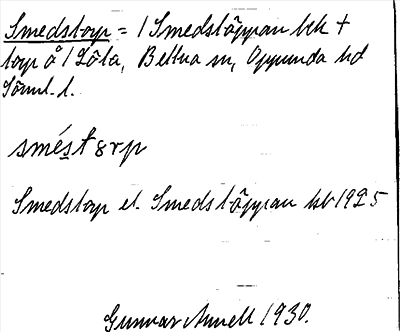 Smedstorp = 1 Smedstäppan bk +
torp å 1 Löta, Bettna sn, Oppunda hd
Söml. l.
sméstorp
Smedstorp el. Smedstäppan kb 1925
Gunnar Annell 1930.